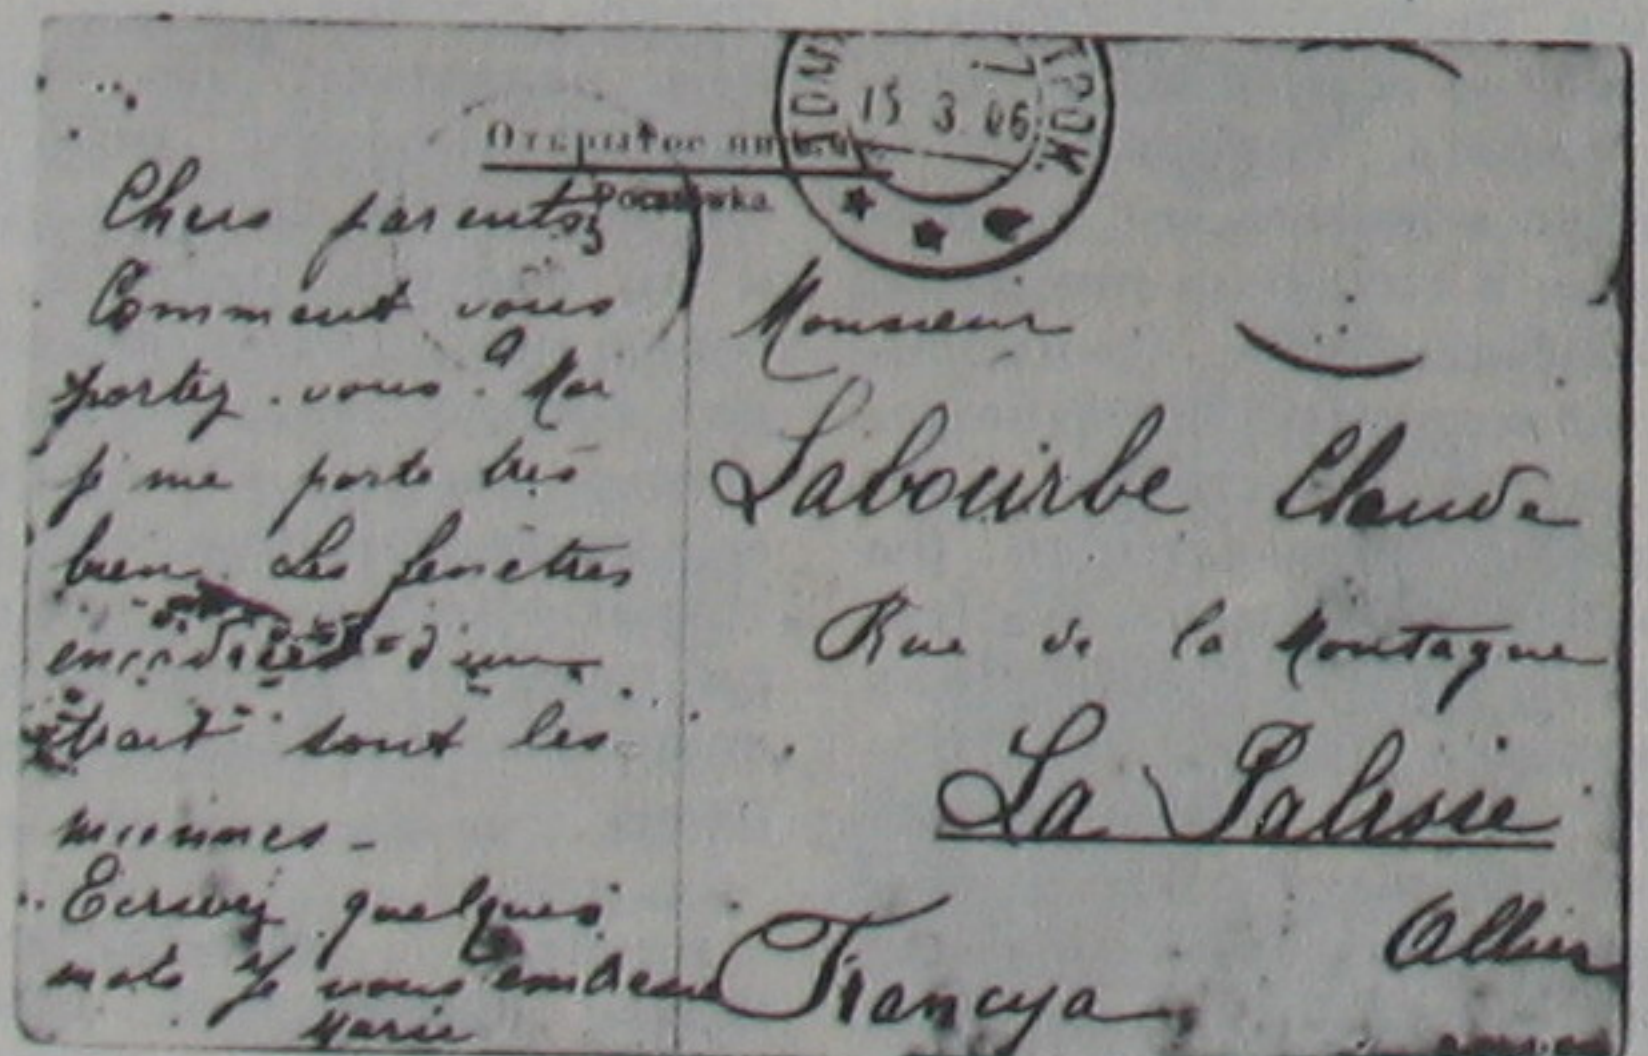 Открытое
Pocztówka
15 3 06
Chers parents
Comment vous
portez-vous ? Moi
je me porte très
bien. Les fenêtres
encadrées d'un
trait sont les
miennes -
Ecrivez quelques
mots Je vous embrasse
Marie
Monsieur
Labourbe Claude
Rue de la Montagne
La Palisse
Allier
Francya